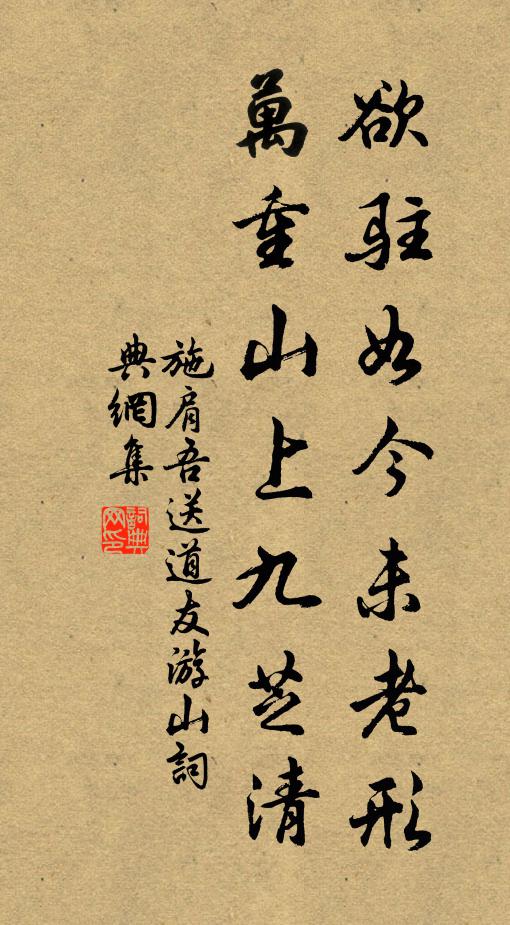 欲駐如今未老形
萬重山上九芝清
施肩吾送道友游山詞
典網集
詞典網印